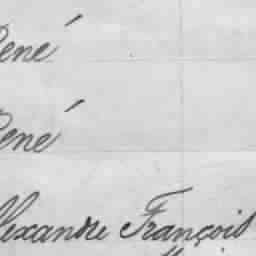 René
René
Alexandre François